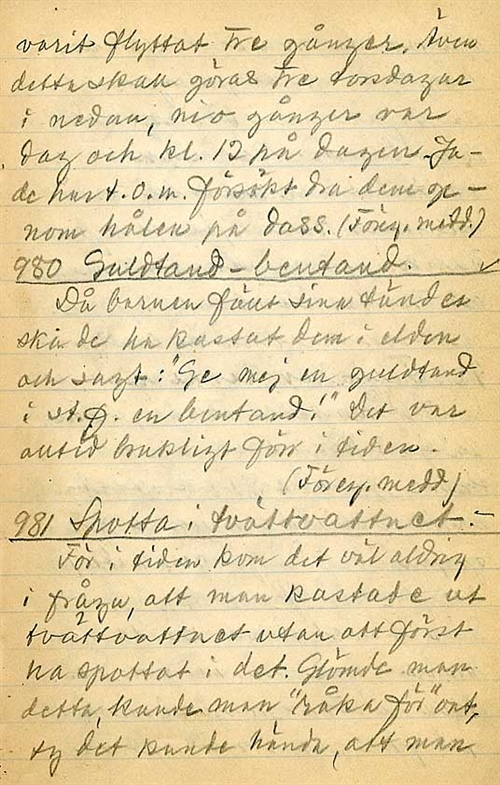 varit flyttat tre gånger. Även
detta skall göras tre torsdagar
i nedan, nio gånger var
dag och kl. 12 på dagen. Ja-
de har t.o.m. försökt dra dem ge-
nom hålen på dass. (Föreg. medd.)
980 Guldtand - bentand.
Då barnen fällt sina tänder
ska de ha kastat dem i elden
och sagt: "Ge mej en guldtand
i st. f. en bentand!" Det var
alltid brukligt förr i tiden.
(Föreg. medd.)
981 Spotta i tvättvattnet.-
Förr i tiden kom det väl aldrig
i fråga, att man kastade ut
tvättvattnet utan att först
ha spottat i det. Glömde man
detta, kunde man "råka för" ont,
ty det kunde hända, att man